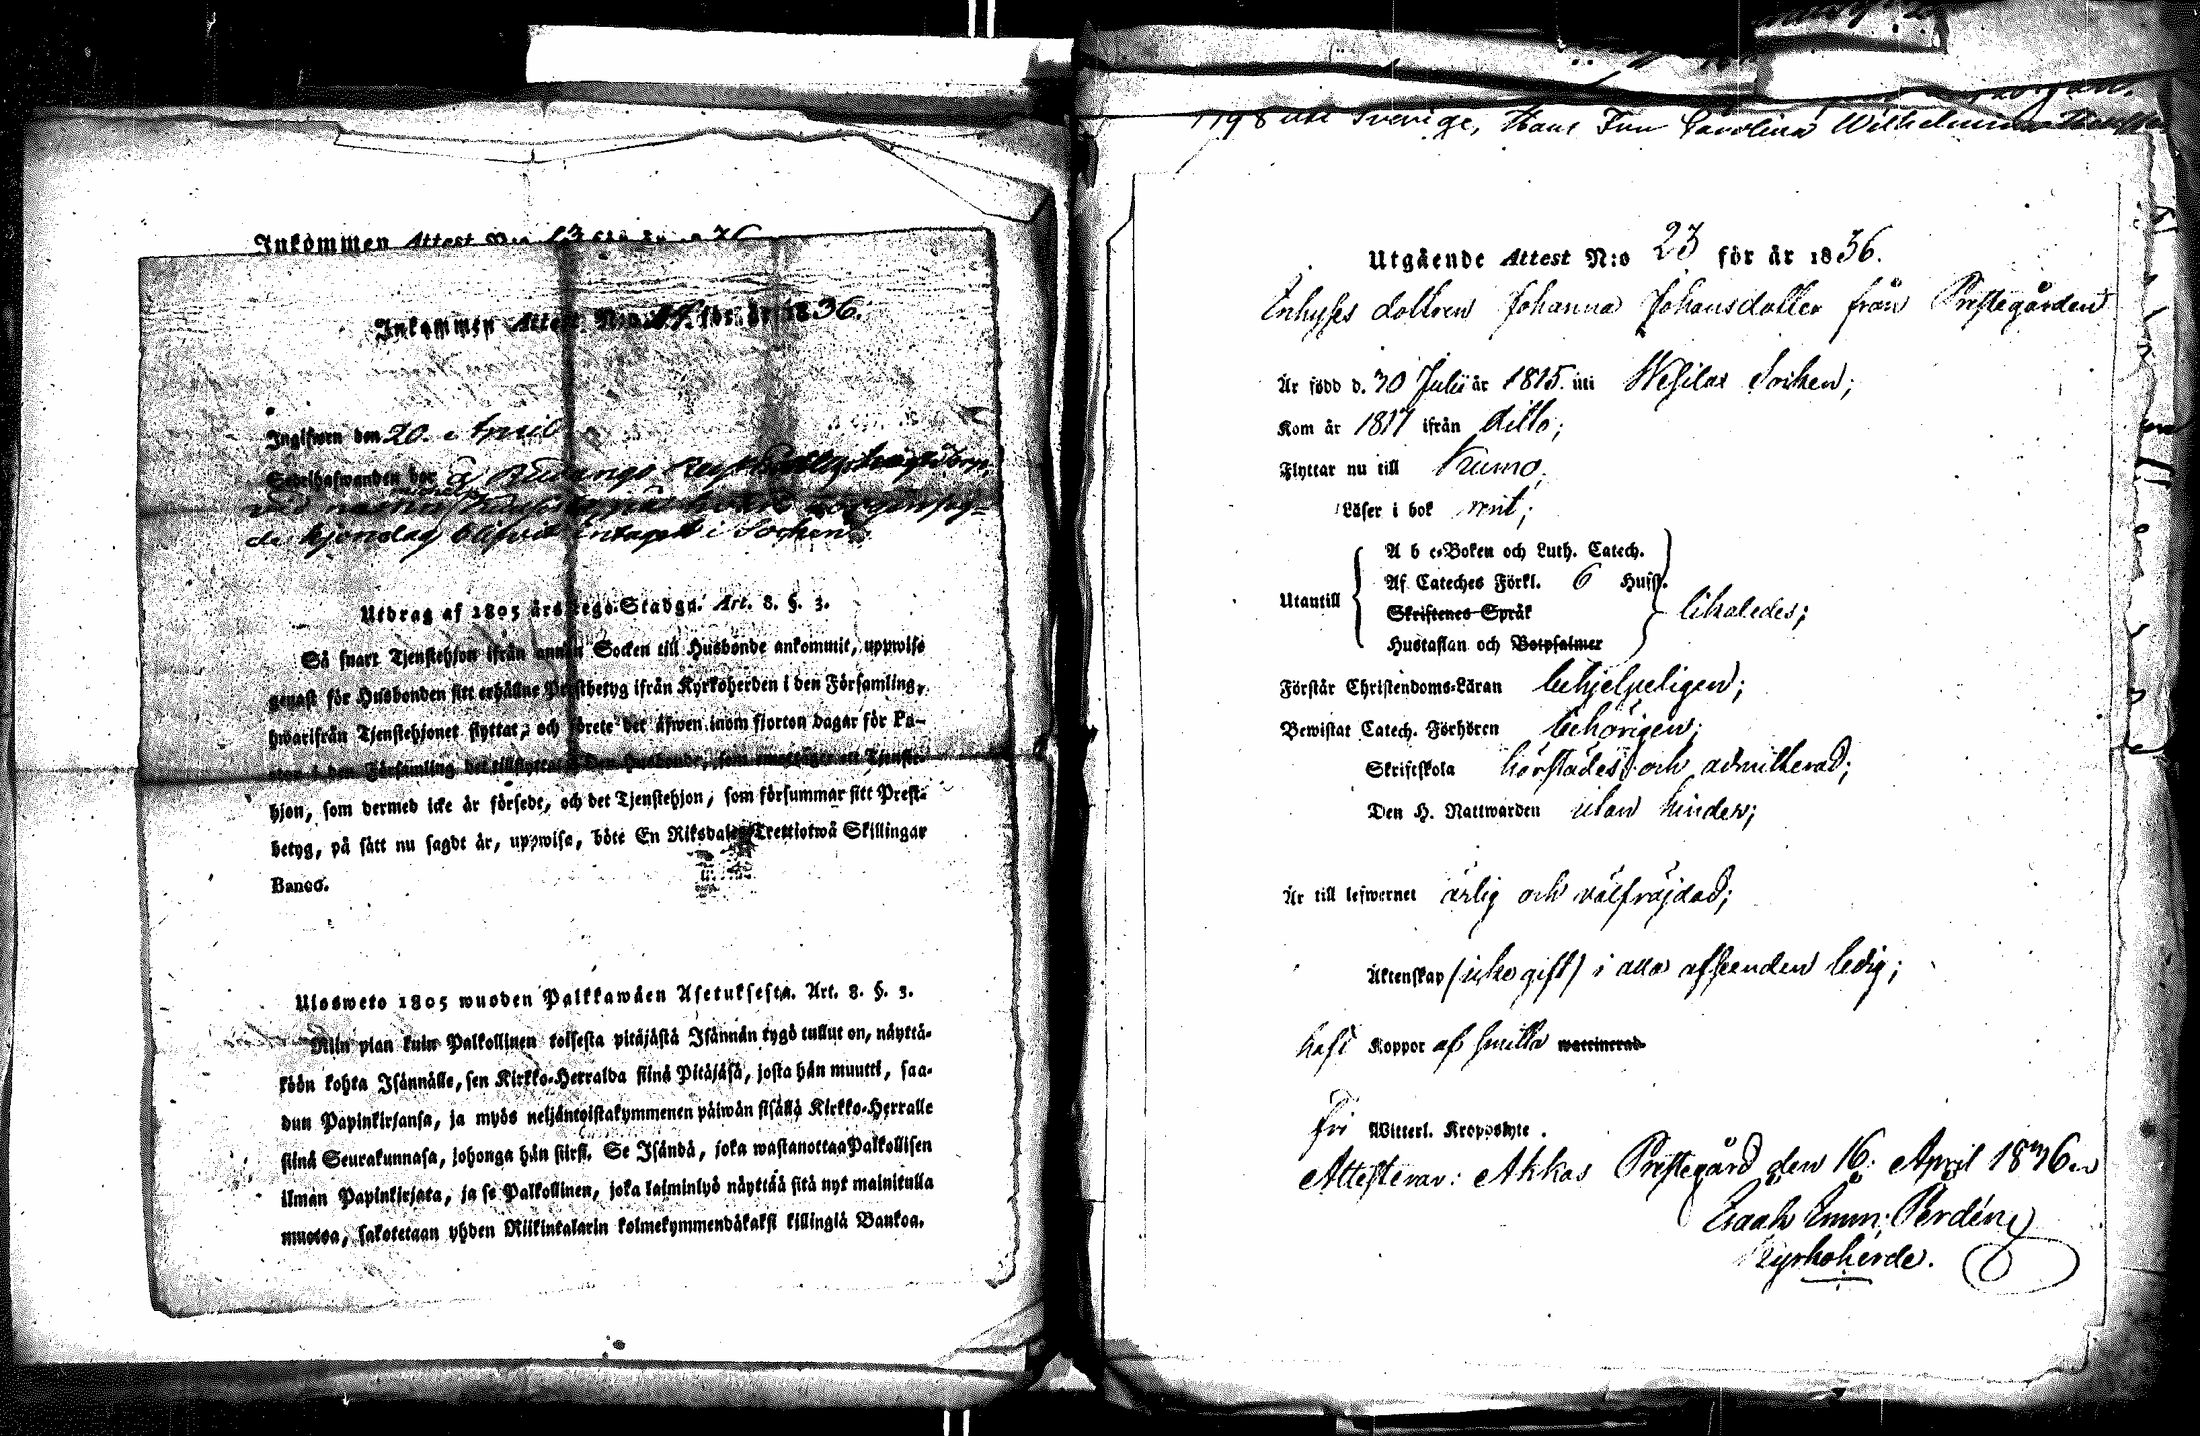 Inkommen Attest N:o
Inkommen Attest N:o för år 1836.
Ingifwen den 20. April
Sedelhafwanden bor
de kjöndag blifvit intagen i Socken
Utdrag af 1805 års Lego-Stadga. Art. 8. §. 3.
Så snart Tjenstehjon ifrån annan Socken till Husbonde ankommit, uppwise
genast för Husbonden sitt erhållne Prestbetyg ifrån Kyrkoherden i den Församling,
hwarifrån Tjenstehjonet flyttat, och förete det äfwen inom fjorton dagar för Pa-
storn i den Församling det tillflyttat. Den Husbonde, som emottager ett Tjenste-
hjon, som dermed icke är försedt, och det Tjenstehjon, som försummar sitt Prest-
betyg, på sätt nu sagdt är, uppwisa, böte En Riksdaler Trettiotwå Skillingar
Banco.
Ulosweto 1805 wuoden Palkkawäen Asetuksesta. Art. 8. §. 3.
Niin pian kuin Palkollinen toisesta pitäjästä Isännän tygö tullut on, näyttä-
köön kohta Isännälle, sen Kirkko-Herralda siinä Pitäjäsä, josta hän muutti, saa-
dun Papinkirjansa, ja myös neljäntoistakymmenen päiwän sisällä Kirkko-Herralle
siinä Seurakunnasa, johonga hän siirsi. Se Isändä, joka wastanottaa Palkollisen
ilman Papinkirjata, ja se Palkollinen, joka laiminlyö näyttää sitä nyt mainitulla
muotoa, sakotetaan yhden Riikintalarin kolmekymmendäkaksi killingiä Bankoa.
1798 uti Sverige, Hans Fru Carolina Wilhelmina
Utgående Attest N:o 23 för år 1836.
Inhyses dottren Johanna Johansdotter från Prestegården
Är född d. 30 Julii år 1815. uti Wesilax Socken;
Kom år 1817 ifrån ditto;
Flyttar nu till Kumo.
Läser i bok rent;
Utantill
A b c-Boken och Luth. Catech.
Af Cateches Förkl. 6 Hufst.
Skriftenes Språk
Hustaflan och Botpsalmer
likaledes;
Förstår Christendoms-Läran behjelpeligen;
Bewistat Catech. Förhören behörigen;
Skriftskola härstädes och admitterad;
Den H. Nattwarden utan hinder;
Är till lefwernet ärlig och välfräjdad;
Äktenskap (icke gift) i alla afseenden ledig;
haft Koppor af smitta waccinerad
Fri Witterl. Kroppslyte.
Attesterar: Akkas Prestegård den 16: April 1836 en
Isaak Emm: Perdén
Kyrkoherde.